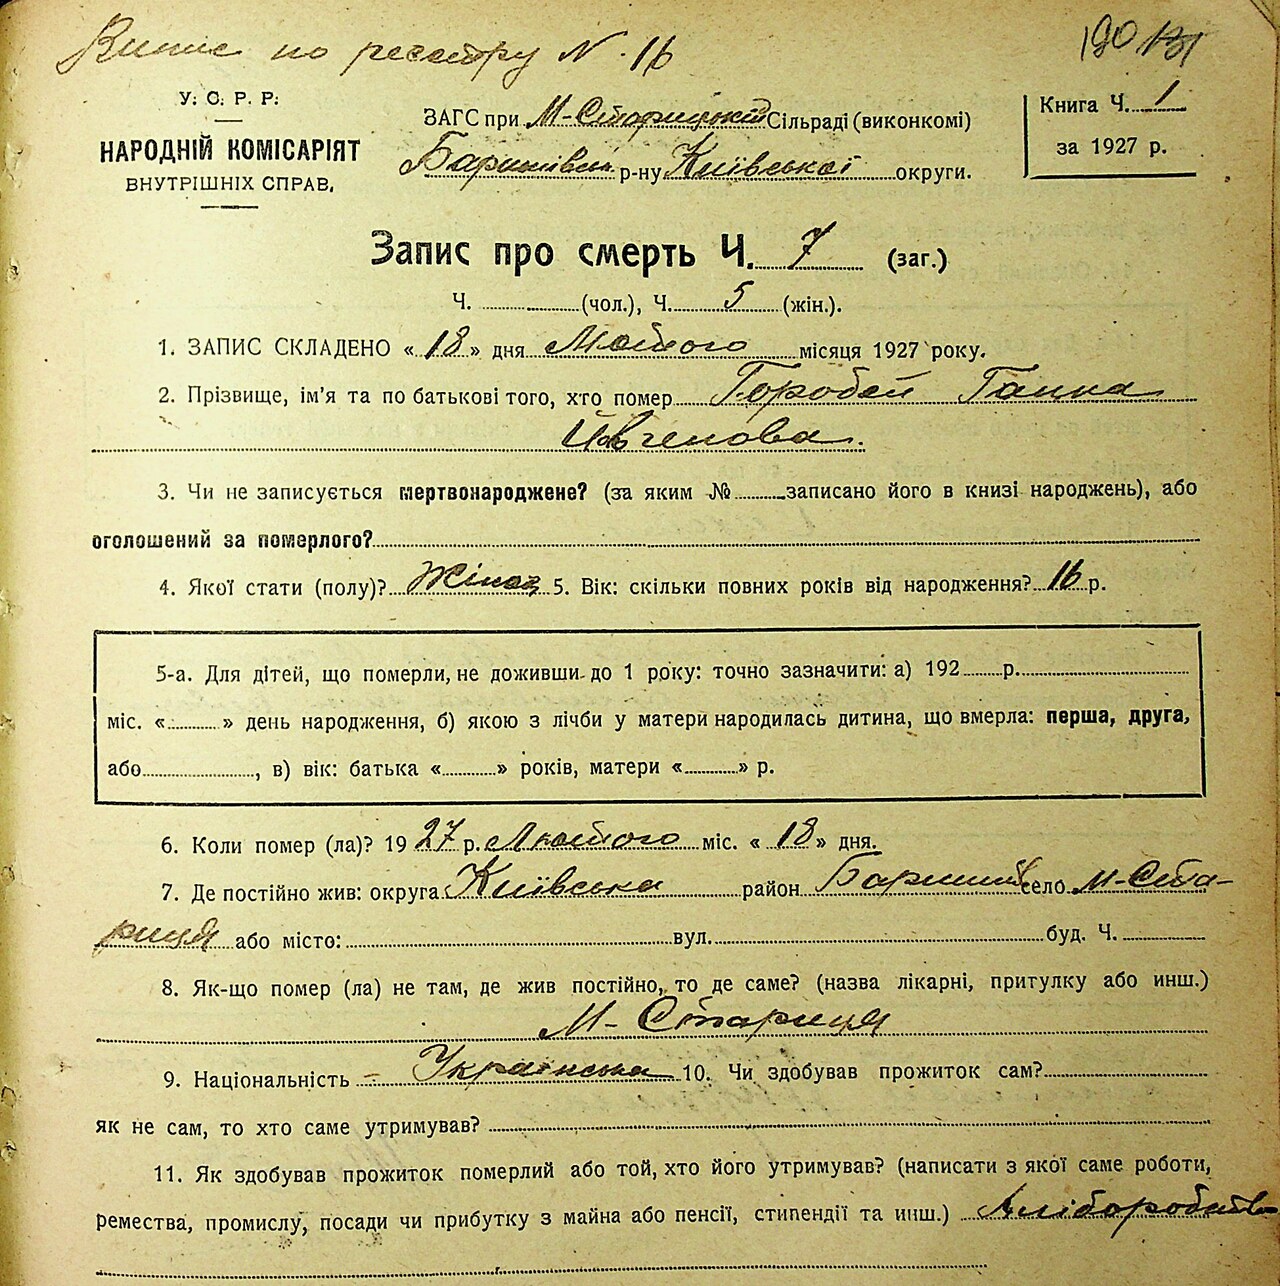 Випис по реєстру N. 16
190
У. С. Р. Р.
НАРОДНІЙ КОМІСАРІЯТ
ВНУТРІШНІХ СПРАВ.
ЗАГС при М-Старицькій Сільраді (виконкомі)
Баришівськ. р-ну Київської округи.
Книга Ч. 1
за 1927 р.
Запис про смерть Ч. 7 (заг.)
Ч. (чол.), Ч. 5 (жін.).
1. ЗАПИС СКЛАДЕНО « 18 » дня Лютого місяця 1927 року.
2. Прізвище, ім'я та по батькові того, хто помер Горобей Ганна
Йовченова.
3. Чи не записується мертвонароджене? (за яким № записано його в книзі народжень), або
оголошений за померлого?
4. Якої стати (полу)? Жіноч 5. Вік: скільки повних років від народження? 16 р.
5-а. Для дітей, що померли, не доживши до 1 року: точно зазначити: а) 192 р.
міс. « » день народження, б) якою з лічби у матери народилась дитина, що вмерла: перша, друга,
або , в) вік: батька « » років, матери « » р.
6. Коли помер (ла)? 19 27 р. Лютого міс. « 18 » дня.
7. Де постійно жив: округа Київська район Баришів село М-Ста-
риця або місто: вул. буд. Ч.
8. Як-що помер (ла) не там, де жив постійно, то де саме? (назва лікарні, притулку або инш.)
М-Стариця
9. Національність - Українська 10. Чи здобував прожиток сам?
як не сам, то хто саме утримував?
11. Як здобував прожиток померлий або той, хто його утримував? (написати з якої саме роботи,
ремества, промислу, посади чи прибутку з майна або пенсії, стипендії та инш.) Хліборобство